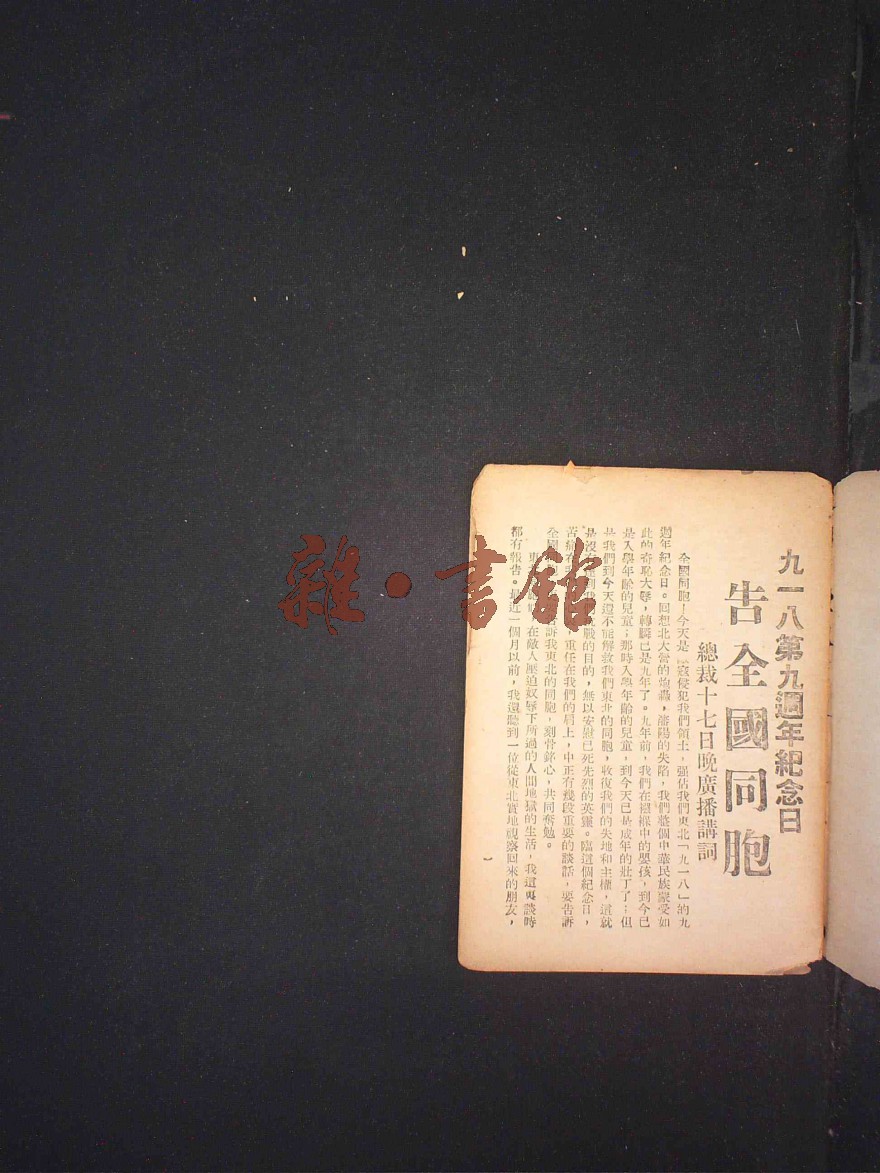 九一八第九週年紀念日
告全國同胞
總裁十七日晚廣播講詞
全國同胞！今天是 寇侵犯我們領土，强佔我們東北「九一八」的九
週年紀念日。回想北大營的炮轟，瀋陽的失陷，我們整個中華民族蒙受如
此的奇恥大辱，轉瞬已是九年了。九年前，我們在襁褓中的嬰孩，到今已
是入學年齡的兒童；那時入學年齡的兒童，到今天已是成年的壯丁了；但
是我們到今天還不能解救我們東北的同胞，收復我們的失地和主權，這就
是沒有達到我 戰的目的，無以安慰已死先烈的英靈。臨這個紀念日，
苦痛在 重任在我們的肩上，中正有幾段重要的談話，要告訴
全國 訴我東北的同胞，刻骨銘心，共同奮勉。
東 在敵人壓迫奴辱下所過的人間地獄的生活，我這 時
都有報告。最近一個月以前，我還聽到一位從東北實地視察回來的朋友，
雜·書館